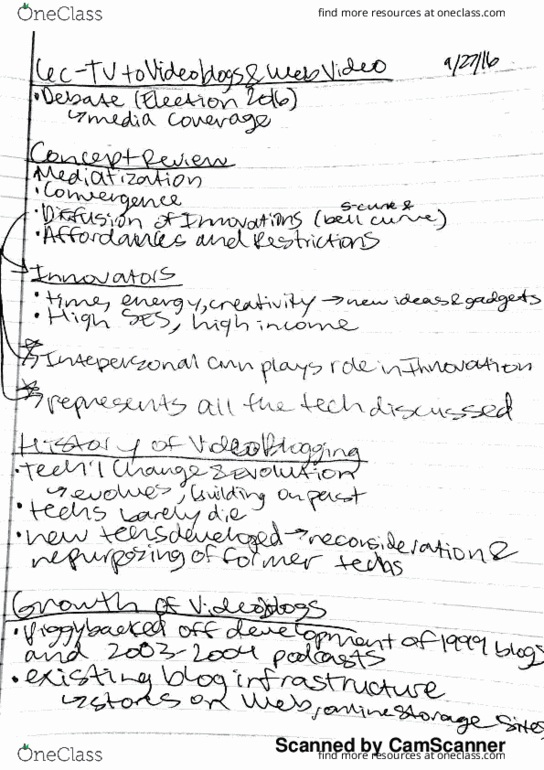 OneClass
find more resources at oneclass.com
Lec-TV to Videoblogs & Web Video 9/27/16
• Debate (Election 2016)
↳ media coverage
Concept Review
Mediatization
• Convergence
s-curve &
• Diffusion of Innovations (bell curve)
• Affordances and Restrictions
Innovators
• time, energy, creativity → new ideas & gadgets
• High SES, high income
Intepersonal cmn plays role in Innovation
represents all the tech discussed
History of VideoBlogging
• tech'l change & evolution
↳ evolves, building on past
• techs barely die
• new techs developed → reconsideration &
repurposing of former techs
Growth of Videoblogs
• Piggybacked off development of 1999 blogs
and 2003-2004 podcasts
• existing blog infrastructure
↳ stores on Web, online storage sites
Scanned by CamScanner
OneClass
find more resources at oneclass.com